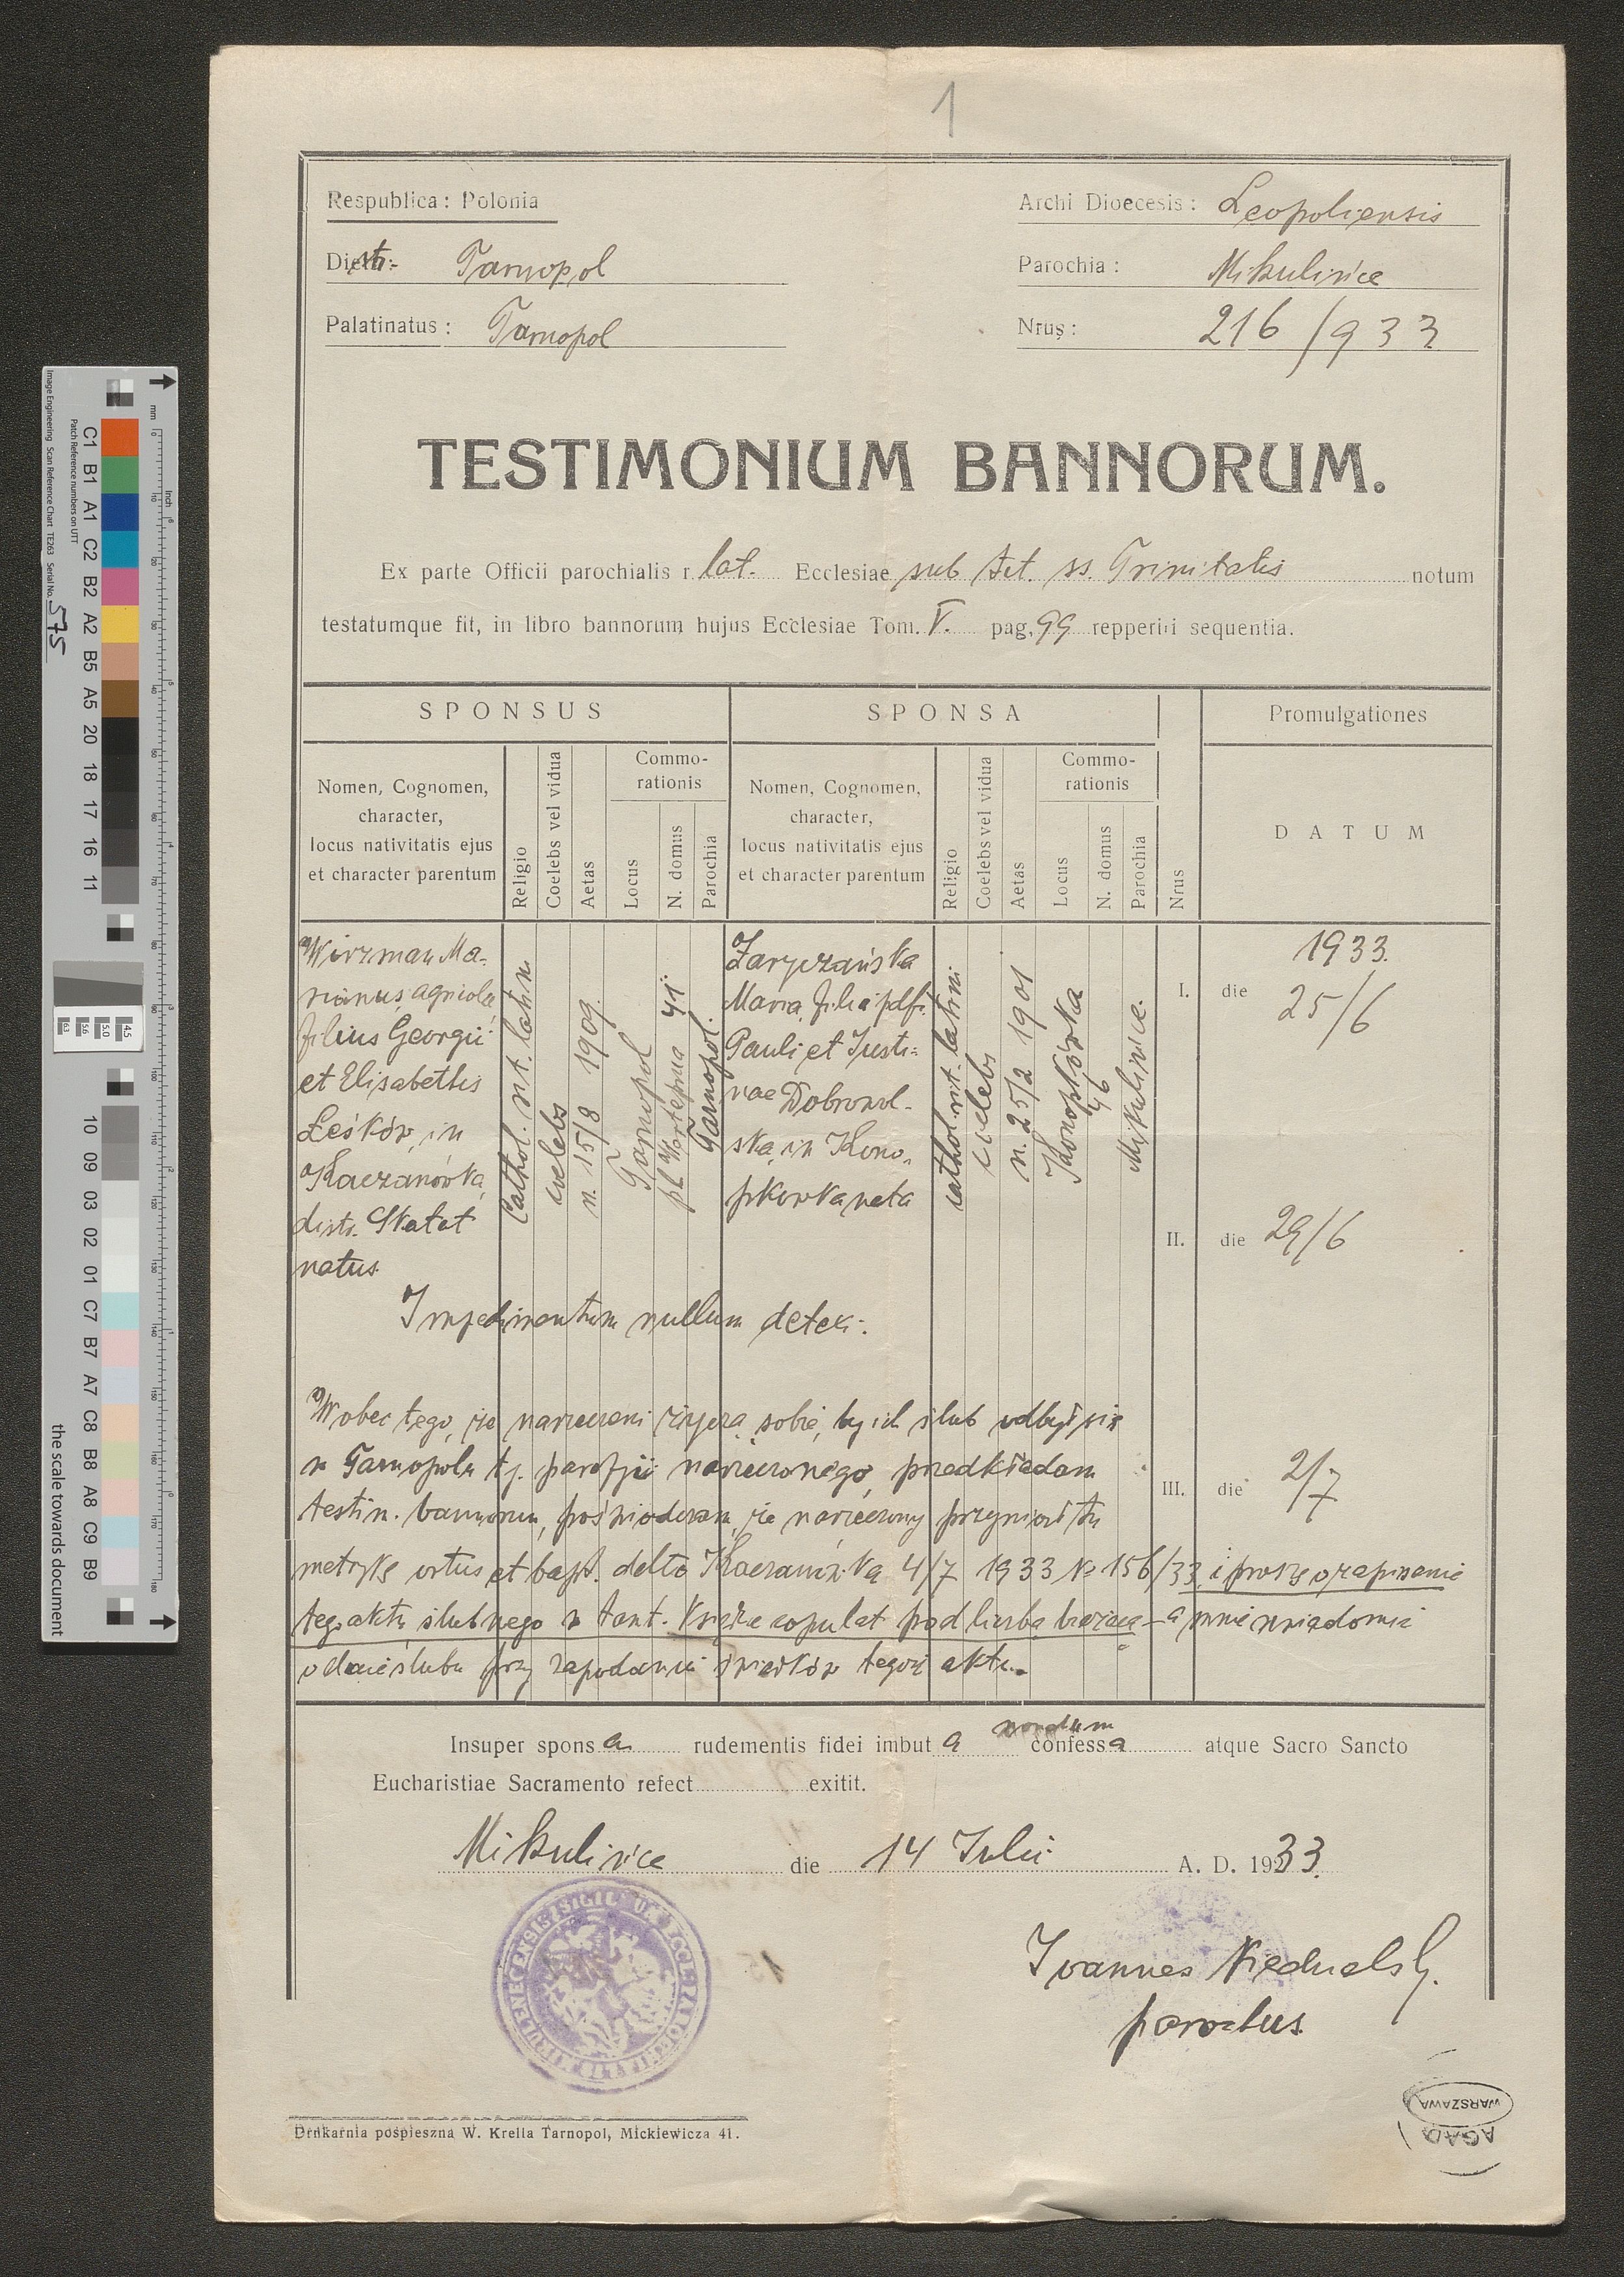 1
Respublica: Polonia
Archi Dioecesis: Leopoliensis
Distr: Tarnopol
Parochia: Mikulińce
Palatinatus: Tarnopol
Nrus: 216/933
TESTIMONIUM BANNORUM.
Ex parte Officii parochialis r. lat. Ecclesiae sub tit. ss. Trinitatis notum
testatumque fit, in libro bannorum hujus Ecclesiae Tom. V. pag. 99 repperiri sequentia.
SPONSUS
SPONSA
Promulgationes
Nomen, Cognomen,
character,
locus nativitatis ejus
et character parentum
Religio
Coelebs vel vidua
Aetas
Commo-
rationis
Locus
N. domus
Parochia
Nomen, Cognomen,
character,
locus nativitatis ejus
et character parentum
Religio
Coelebs vel vidua
Aetas
Commo-
rationis
Locus
N. domus
Parochia
Nrus
DATUM
Wirzman Ma-
rianus, agricola
filius Georgii
et Elisabethis
Leśków, in
Kaczanówka,
distr. Skałat
natus
Cathol. rit. latin
coelebs
n. 15/8 1909.
Tarnopol
41
Tarnopol.
Zaryczańska
Maria, filia pdf.
Pauli et Justi-
nae Dobrowol-
ska, in Kono-
pkówka nata
cathol. rit. latini
coelebs
n. 25/2 1901
Konopkówka
46
Mikulińce.
I. die 1933.
25/6
II. die 29/6
III. die 2/7
Impedimentum nullum detex:
Wobec tego, że narzeczeni życzą sobie, by ich ślub odbył się
w Tarnopolu tj. parafji narzeczonego, przedkładam
testim. bannorum, poświadczam, że narzeczony przyniósł tu
metrykę ortus et bapt. dcto Kaczanówka 4/7 1933 No 156/33, i proszę o zapisanie
tego aktu ślubnego w tamt. Księdze copulat pod liczbą bieżącą - a mnie uwiadomić
o dacie ślubu przy zapodaniu świadków tegoż aktu.-
Insuper sponsa rudementis fidei imbuta nondum confessa atque Sacro Sancto
Eucharistiae Sacramento refect exitit.
Mikulińce die 14 Julii A. D. 1933.
Joannes
parochus.
Drukarnia pośpieszna W. Krella Tarnopol, Mickiewicza 41.
AGAD
WARSZAWA
Image Engineering Scan Reference Chart TE263 Serial No. 575
Patch Reference numbers on UTT
C1 B1 A1 C2 B2 A2 B5 A5 20 18 17 16 11
10 09 03 02 01 C7 B7 A7 C8 B8 A8 C9 B9
mm
inch
the scale towards document